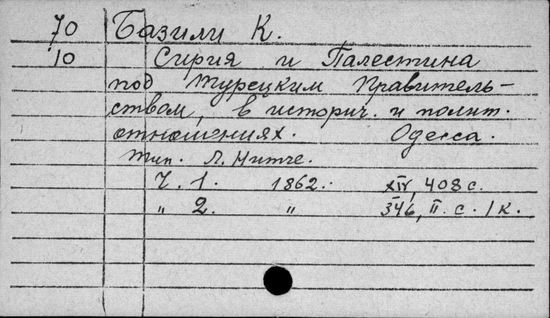 70 Базили К.
10 Сирия и Палестина
под Турецким Правитель-
ством, в историч. и полит.
отношениях. Одесса.
тип. Л. Нитче.
Ч. 1. 1862. XIV, 408 с.
„ 2. „ 346, II. с. 1 к.